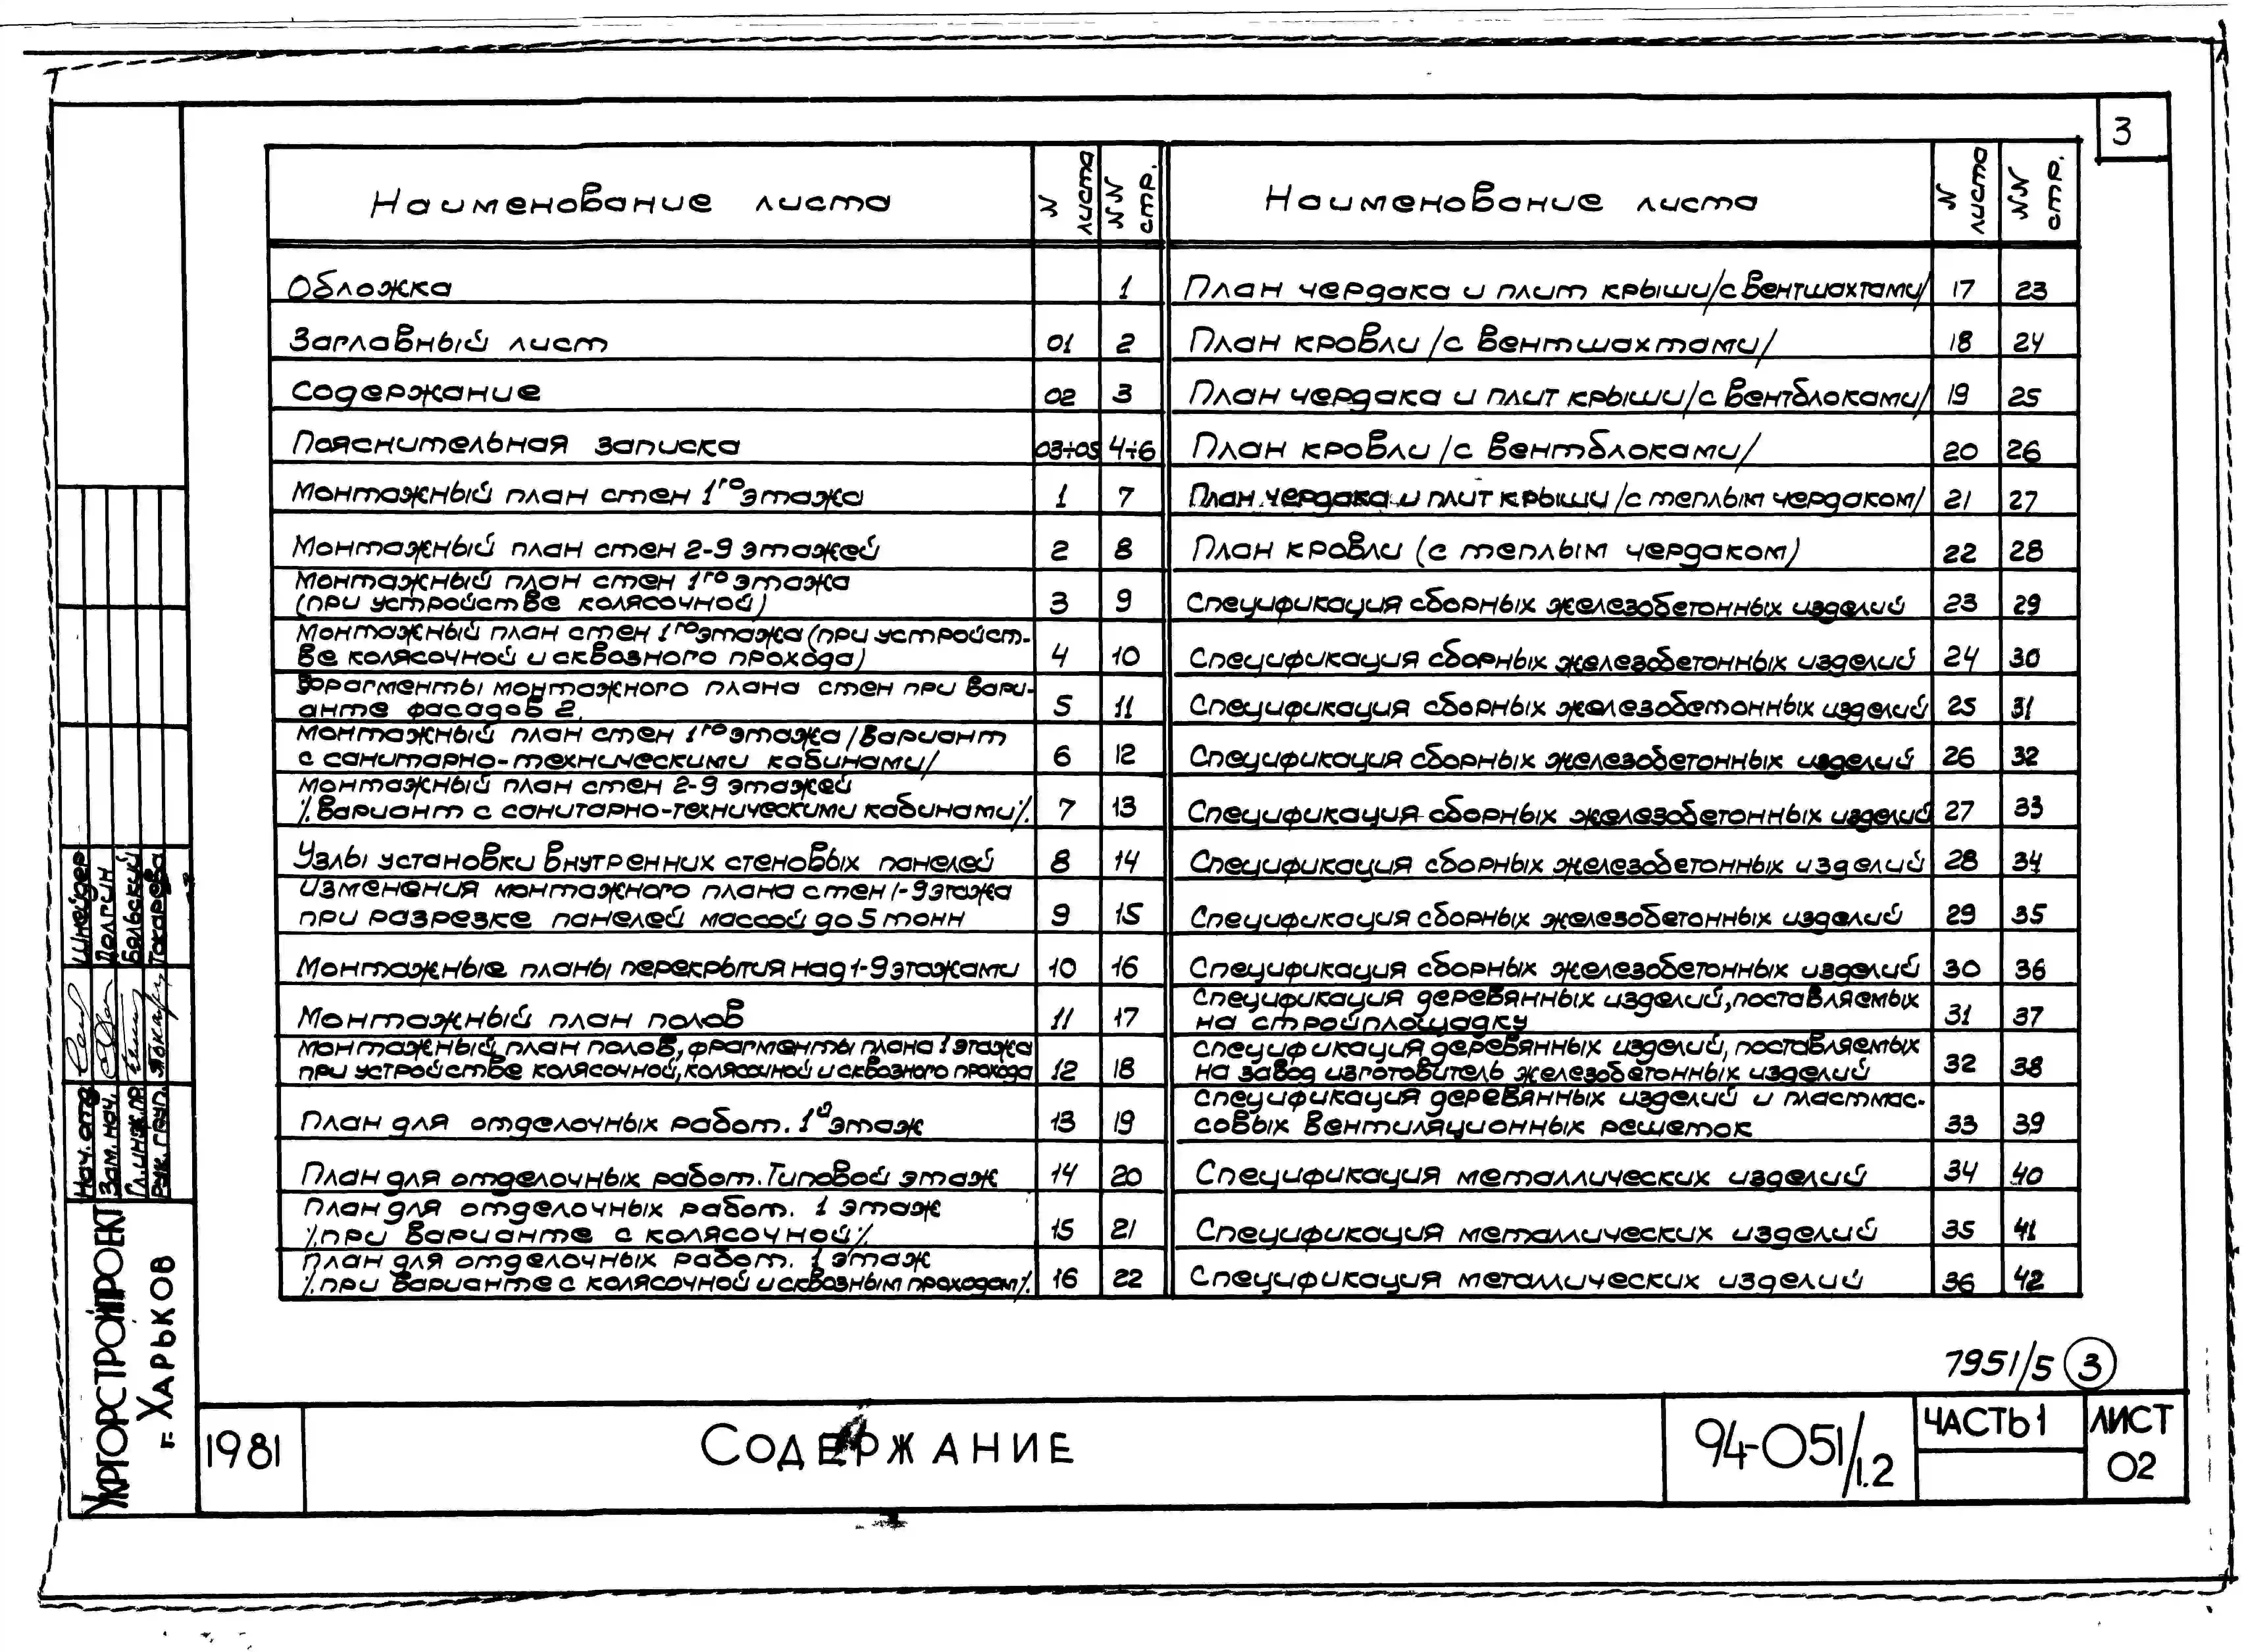 3
Наименование листа
N листа
NN стр.
Обложка 1
Заглавный лист 01 2
Содержание 02 3
Пояснительная записка 03÷05 4÷6
Монтажный план стен 1го этажа 1 7
Монтажный план стен 2-9 этажей 2 8
Монтажный план стен 1го этажа
(при устройстве колясочной) 3 9
Монтажный план стен 1го этажа (при устройст-
ве колясочной и сквозного прохода) 4 10
Фрагменты монтажного плана стен при вари-
анте фасадов 2. 5 11
Монтажный план стен 1го этажа /вариант
с санитарно-техническими кабинами/ 6 12
Монтажный план стен 2-9 этажей
/.вариант с санитарно-техническими кабинами/. 7 13
Узлы установки внутренних стеновых панелей 8 14
Изменения монтажного плана стен 1-9 этажа
при разрезке панелей массой до 5 тонн 9 15
Монтажные планы перекрытия над 1-9 этажами 10 16
Монтажный план полов 11 17
Монтажный план полов, фрагменты плана 1 этажа
при устройстве колясочной, колясочной и сквозного прохода 12 18
План для отделочных работ. 1й этаж 13 19
План для отделочных работ. Типовой этаж 14 20
План для отделочных работ. 1 этаж
/.при варианте с колясочной/. 15 21
План для отделочных работ. 1 этаж
/.при варианте с колясочной и сквозным проходом/. 16 22
Наименование листа
N листа
NN стр.
План чердака и плит крыши /с вентшахтами/ 17 23
План кровли /с вентшахтами/ 18 24
План чердака и плит крыши /с вентблоками/ 19 25
План кровли /с вентблоками/ 20 26
План чердака и плит крыши /с теплым чердаком/ 21 27
План кровли (с теплым чердаком) 22 28
Спецификация сборных железобетонных изделий 23 29
Спецификация сборных железобетонных изделий 24 30
Спецификация сборных железобетонных изделий 25 31
Спецификация сборных железобетонных изделий 26 32
Спецификация сборных железобетонных изделий 27 33
Спецификация сборных железобетонных изделий 28 34
Спецификация сборных железобетонных изделий 29 35
Спецификация сборных железобетонных изделий 30 36
Спецификация деревянных изделий, поставляемых
на стройплощадку 31 37
Спецификация деревянных изделий, поставляемых
на завод изготовитель железобетонных изделий 32 38
Спецификация деревянных изделий и пластмас-
совых вентиляционных решеток 33 39
Спецификация металлических изделий 34 40
Спецификация металлических изделий 35 41
Спецификация металлических изделий 36 42
7951/5 3
Нач. отд. Шнейдер
Зам. нач. Долгин
Гл. инж. пр. Бяльский
Рук. груп. Токарева
Укргорстройпроект
г. Харьков
1981
Содержание
94-051/1.2
Часть 1
Лист
02